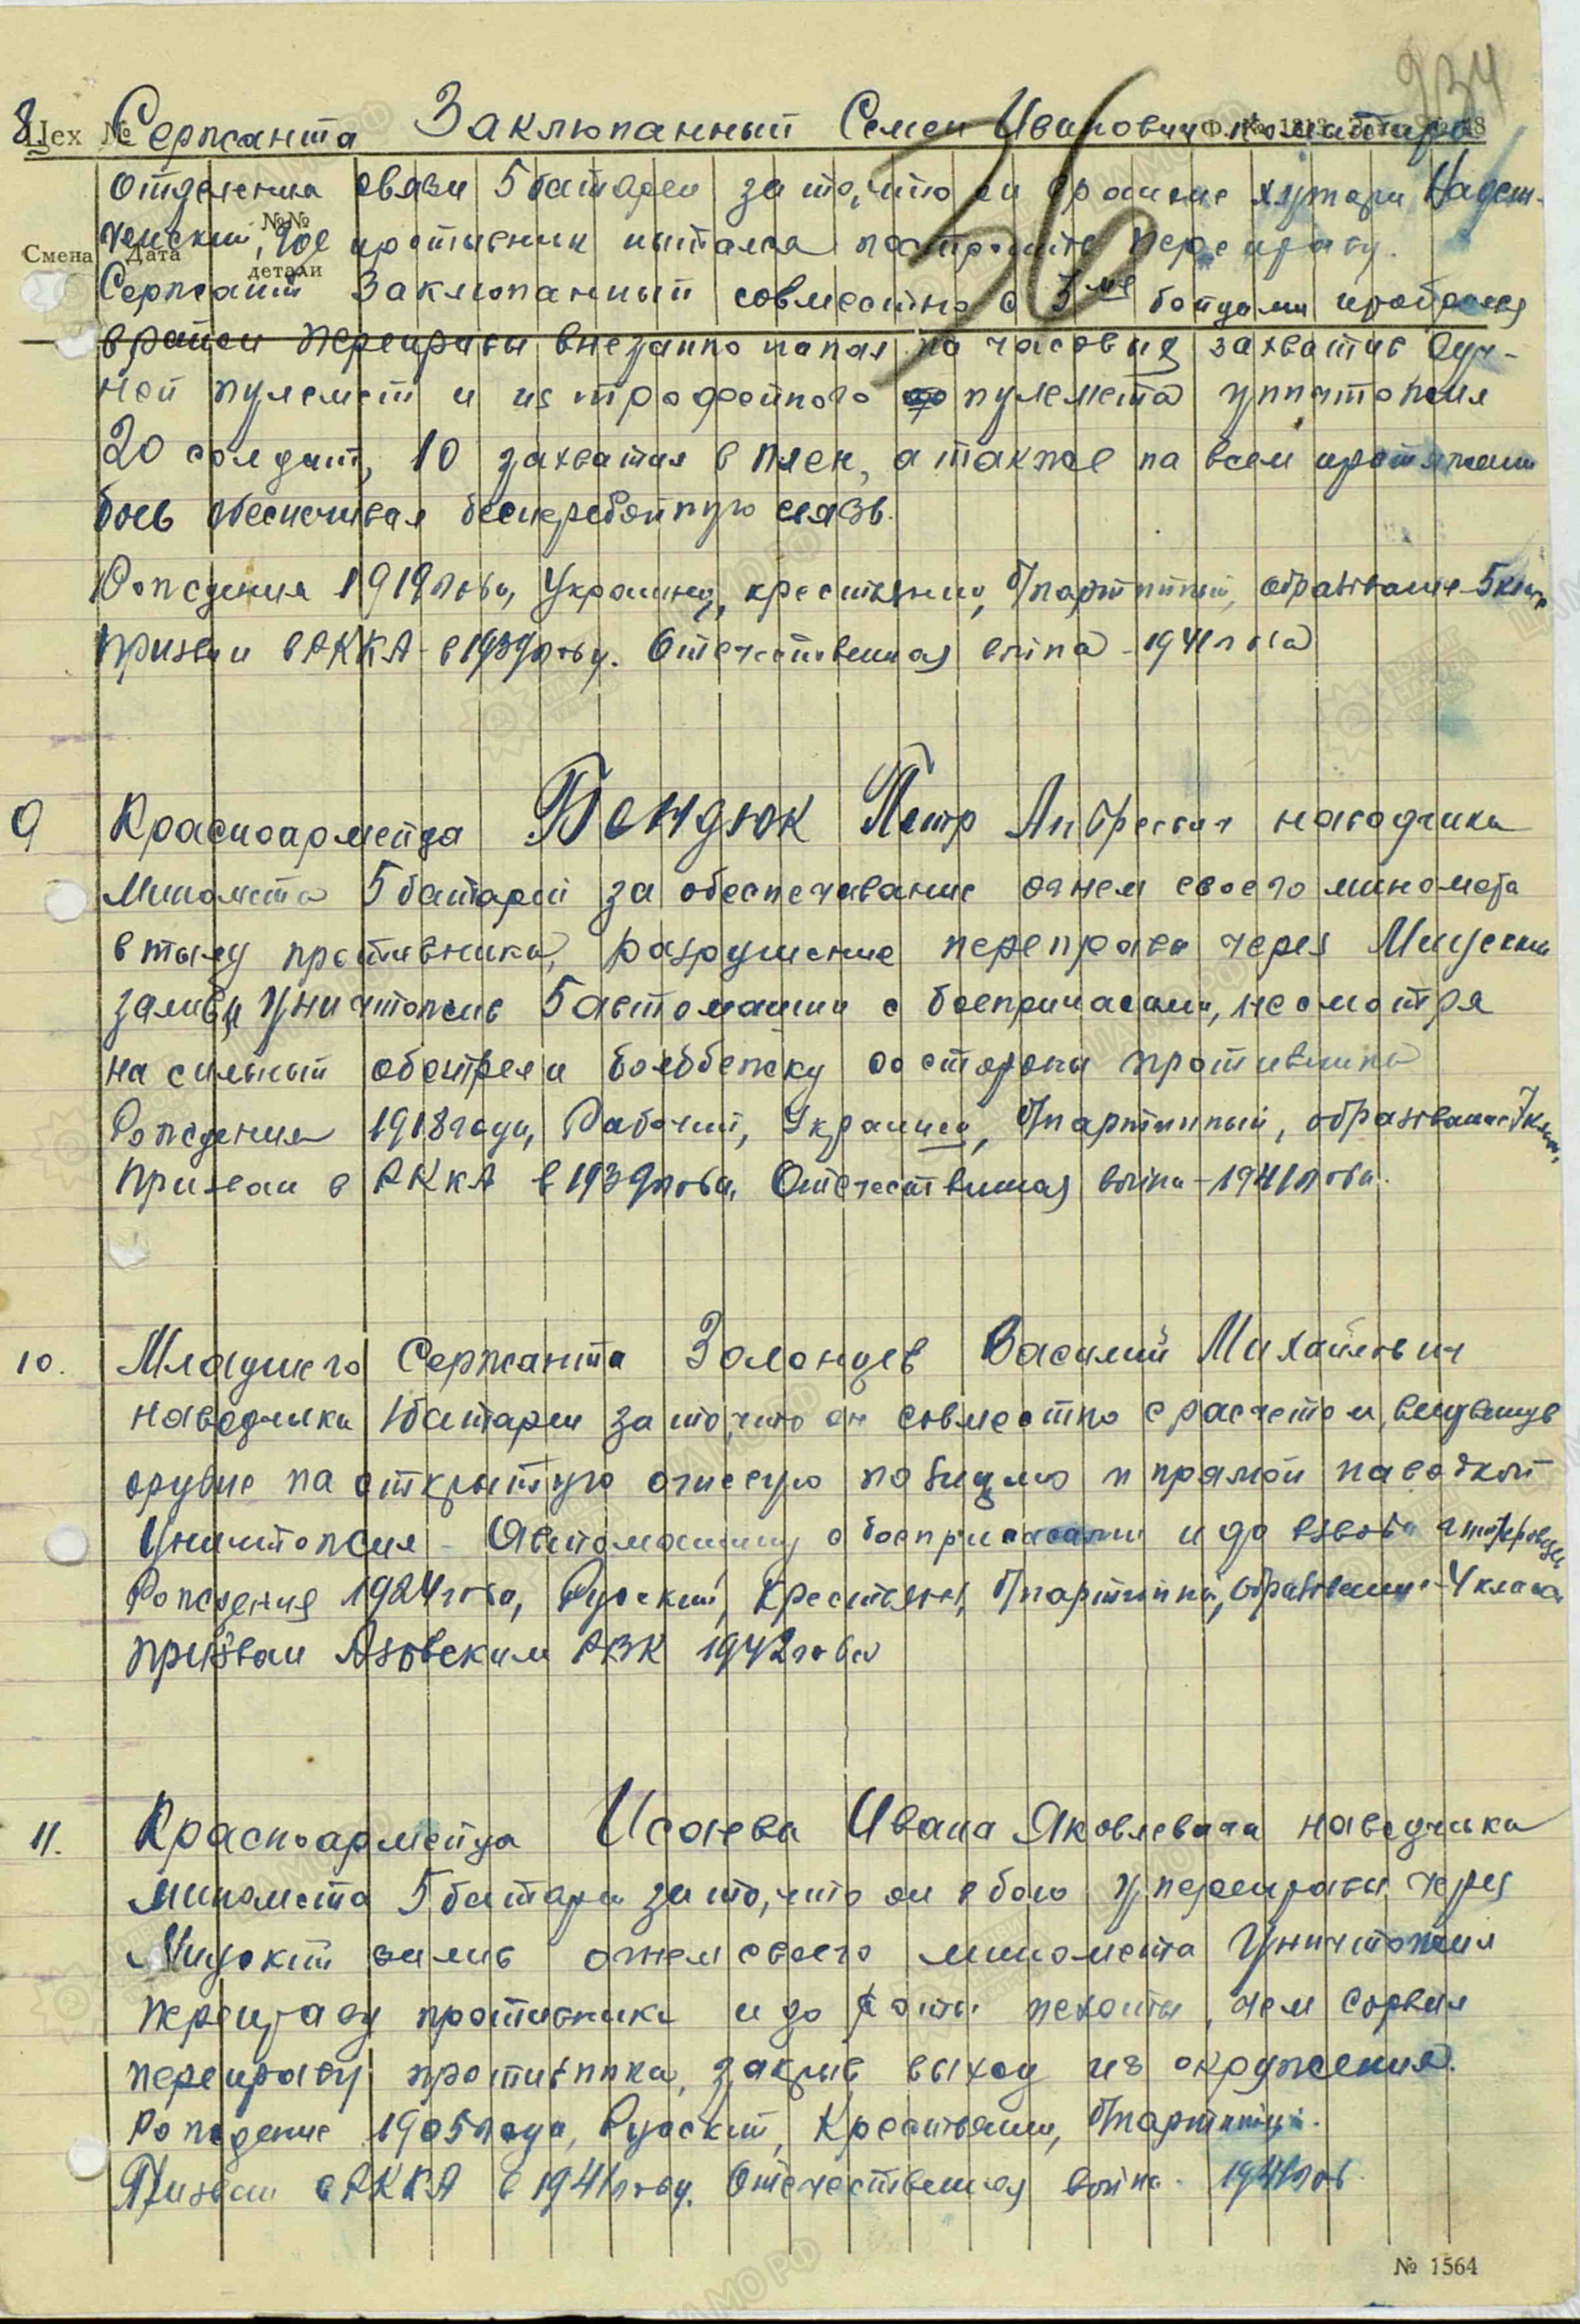 934
36
8. Сержанта Заклюпанный Семен Иванович командира
Цех №
отделения связи 5 батареи за то, что он в районе хутора Надеж-
№№
женский, где противник пытался построить переправу.
Смена Дата детали
Сержант Заклюпанный совместно с 3мя бойцами пробрался
в район переправы внезапно напал на часовых захватив руч-
ной пулемет и из трофейного пулемета уничтожил
20 солдат, 10 захватил в плен, а также на всем протяжении
боев обеспечивал бесперебойную связь.
Рождения 1919 года, Украинец, крестьянин, б/партийный, образование 5 клас
призван в РККА в 1939 году. Отечественная война - 1941 года
9 Красноармейца Бендюк Петр Андреевич наводчика
миномета 5 батареи за обеспечивание огнем своего миномета
в тылу противника, разрушение переправы через Миусский
залив, уничтожив 5 автомашин с боеприпасами, несмотря
на сильный обстрел и бомбежку со стороны противника
Рождения 1918 года, Рабочий, Украинец, б/партийный, образование 7 клас.
Призван в РККА в 1939 года, Отечественная война - 1941 года.
10. Младшего Сержанта Золонцев Василий Михайлович
наводчика 1 батареи за то, что он совместно с расчетом, выдвинув
орудие на открытую огневую позицию и прямой наводкой
Уничтожил - Автомашину с боеприпасами и до взвода
Рождения 1924 года, Русский, Крестьян, б/партийный, образование - 4 класса
призван Азовским РВК 1942 года
11. Красноармейца Исаева Ивана Яковлевича наводчика
миномета 5 батареи за то, что он в бою у переправы через
Миуский залив огнем своего миномета Уничтожил
переправу противника и до роты пехоты, чем сорвал
переправу противника, закрыв выход из окружения.
Рождение 1905 года, Русский, Крестьянин, б/партийный.
Призван в РККА в 1941 году. Отечественная война - 1941 год.
№ 1564